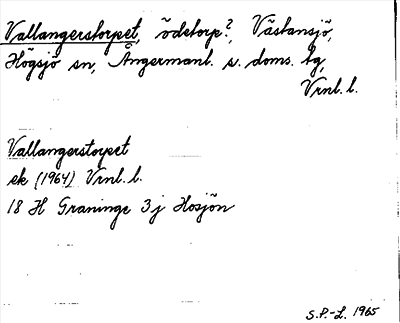 Vallangerstorpet, ödetorp?, Västansjö,
Högsjö sn, Ångermanl. s. doms. tg,
Vrnl. l.
Vallangerstorpet
ek (1964) Vrnl. l.
18 H Graninge 3j Hosjön
S.P.-L. 1965